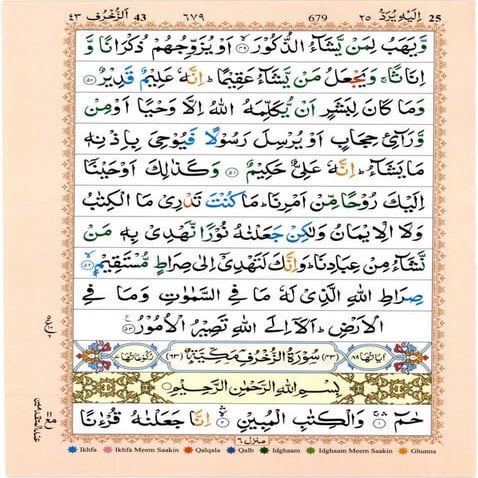 ٤٣ اَلزُّخْرُف 43 ٦٧٩ 679 اِلَیْهِ یُرَدُّ ٢٥ 25
وَّیَهَبُ لِمَنْ یَّشَآءُ الذُّكُوْرَ ﴿٤٩﴾ اَوْ یُزَوِّجُهُمْ ذُكْرَانًا وَّ
اِنَاثًا ۚ وَیَجْعَلُ مَنْ یَّشَآءُ عَقِیْمًا ؕ اِنَّهٗ عَلِیْمٌ قَدِیْرٌ ﴿٥٠﴾
وَمَا كَانَ لِبَشَرٍ اَنْ یُّكَلِّمَهُ اللّٰهُ اِلَّا وَحْیًا اَوْ مِنْ
وَّرَآئِ حِجَابٍ اَوْ یُرْسِلَ رَسُوْلًا فَیُوْحِیَ بِاِذْنِهٖ
مَا یَشَآءُ ؕ اِنَّهٗ عَلِیٌّ حَكِیْمٌ ﴿٥١﴾ وَكَذٰلِكَ اَوْحَیْنَاۤ
اِلَیْكَ رُوْحًا مِّنْ اَمْرِنَا ؕ مَا كُنْتَ تَدْرِیْ مَا الْكِتٰبُ
وَلَا الْاِیْمَانُ وَلٰكِنْ جَعَلْنٰهُ نُوْرًا نَّهْدِیْ بِهٖ مَنْ
نَّشَآءُ مِنْ عِبَادِنَا ؕ وَاِنَّكَ لَتَهْدِیْۤ اِلٰی صِرَاطٍ مُّسْتَقِیْمٍ ﴿٥٢﴾
صِرَاطِ اللّٰهِ الَّذِیْ لَهٗ مَا فِی السَّمٰوٰتِ وَمَا فِی
الْاَرْضِ ؕ اَلَاۤ اِلَی اللّٰهِ تَصِیْرُ الْاُمُوْرُ ﴿٥٣﴾
اٰیَاتُهَا ٨٩ (٤٣) سُوْرَةُ الزُّخْرُفِ مَكِّیَّةٌ (٦٣) رُكُوْعَاتُهَا ٧
بِسْمِ اللّٰهِ الرَّحْمٰنِ الرَّحِیْمِ
حٰمٓ ﴿١﴾ وَالْكِتٰبِ الْمُبِیْنِ ﴿٢﴾ اِنَّا جَعَلْنٰهُ قُرْءٰنًا
منزل ٦
Ikhfa Ikhfa Meem Saakin Qalqala Qalb Idghaam Idghaam Meem Saakin Ghunna